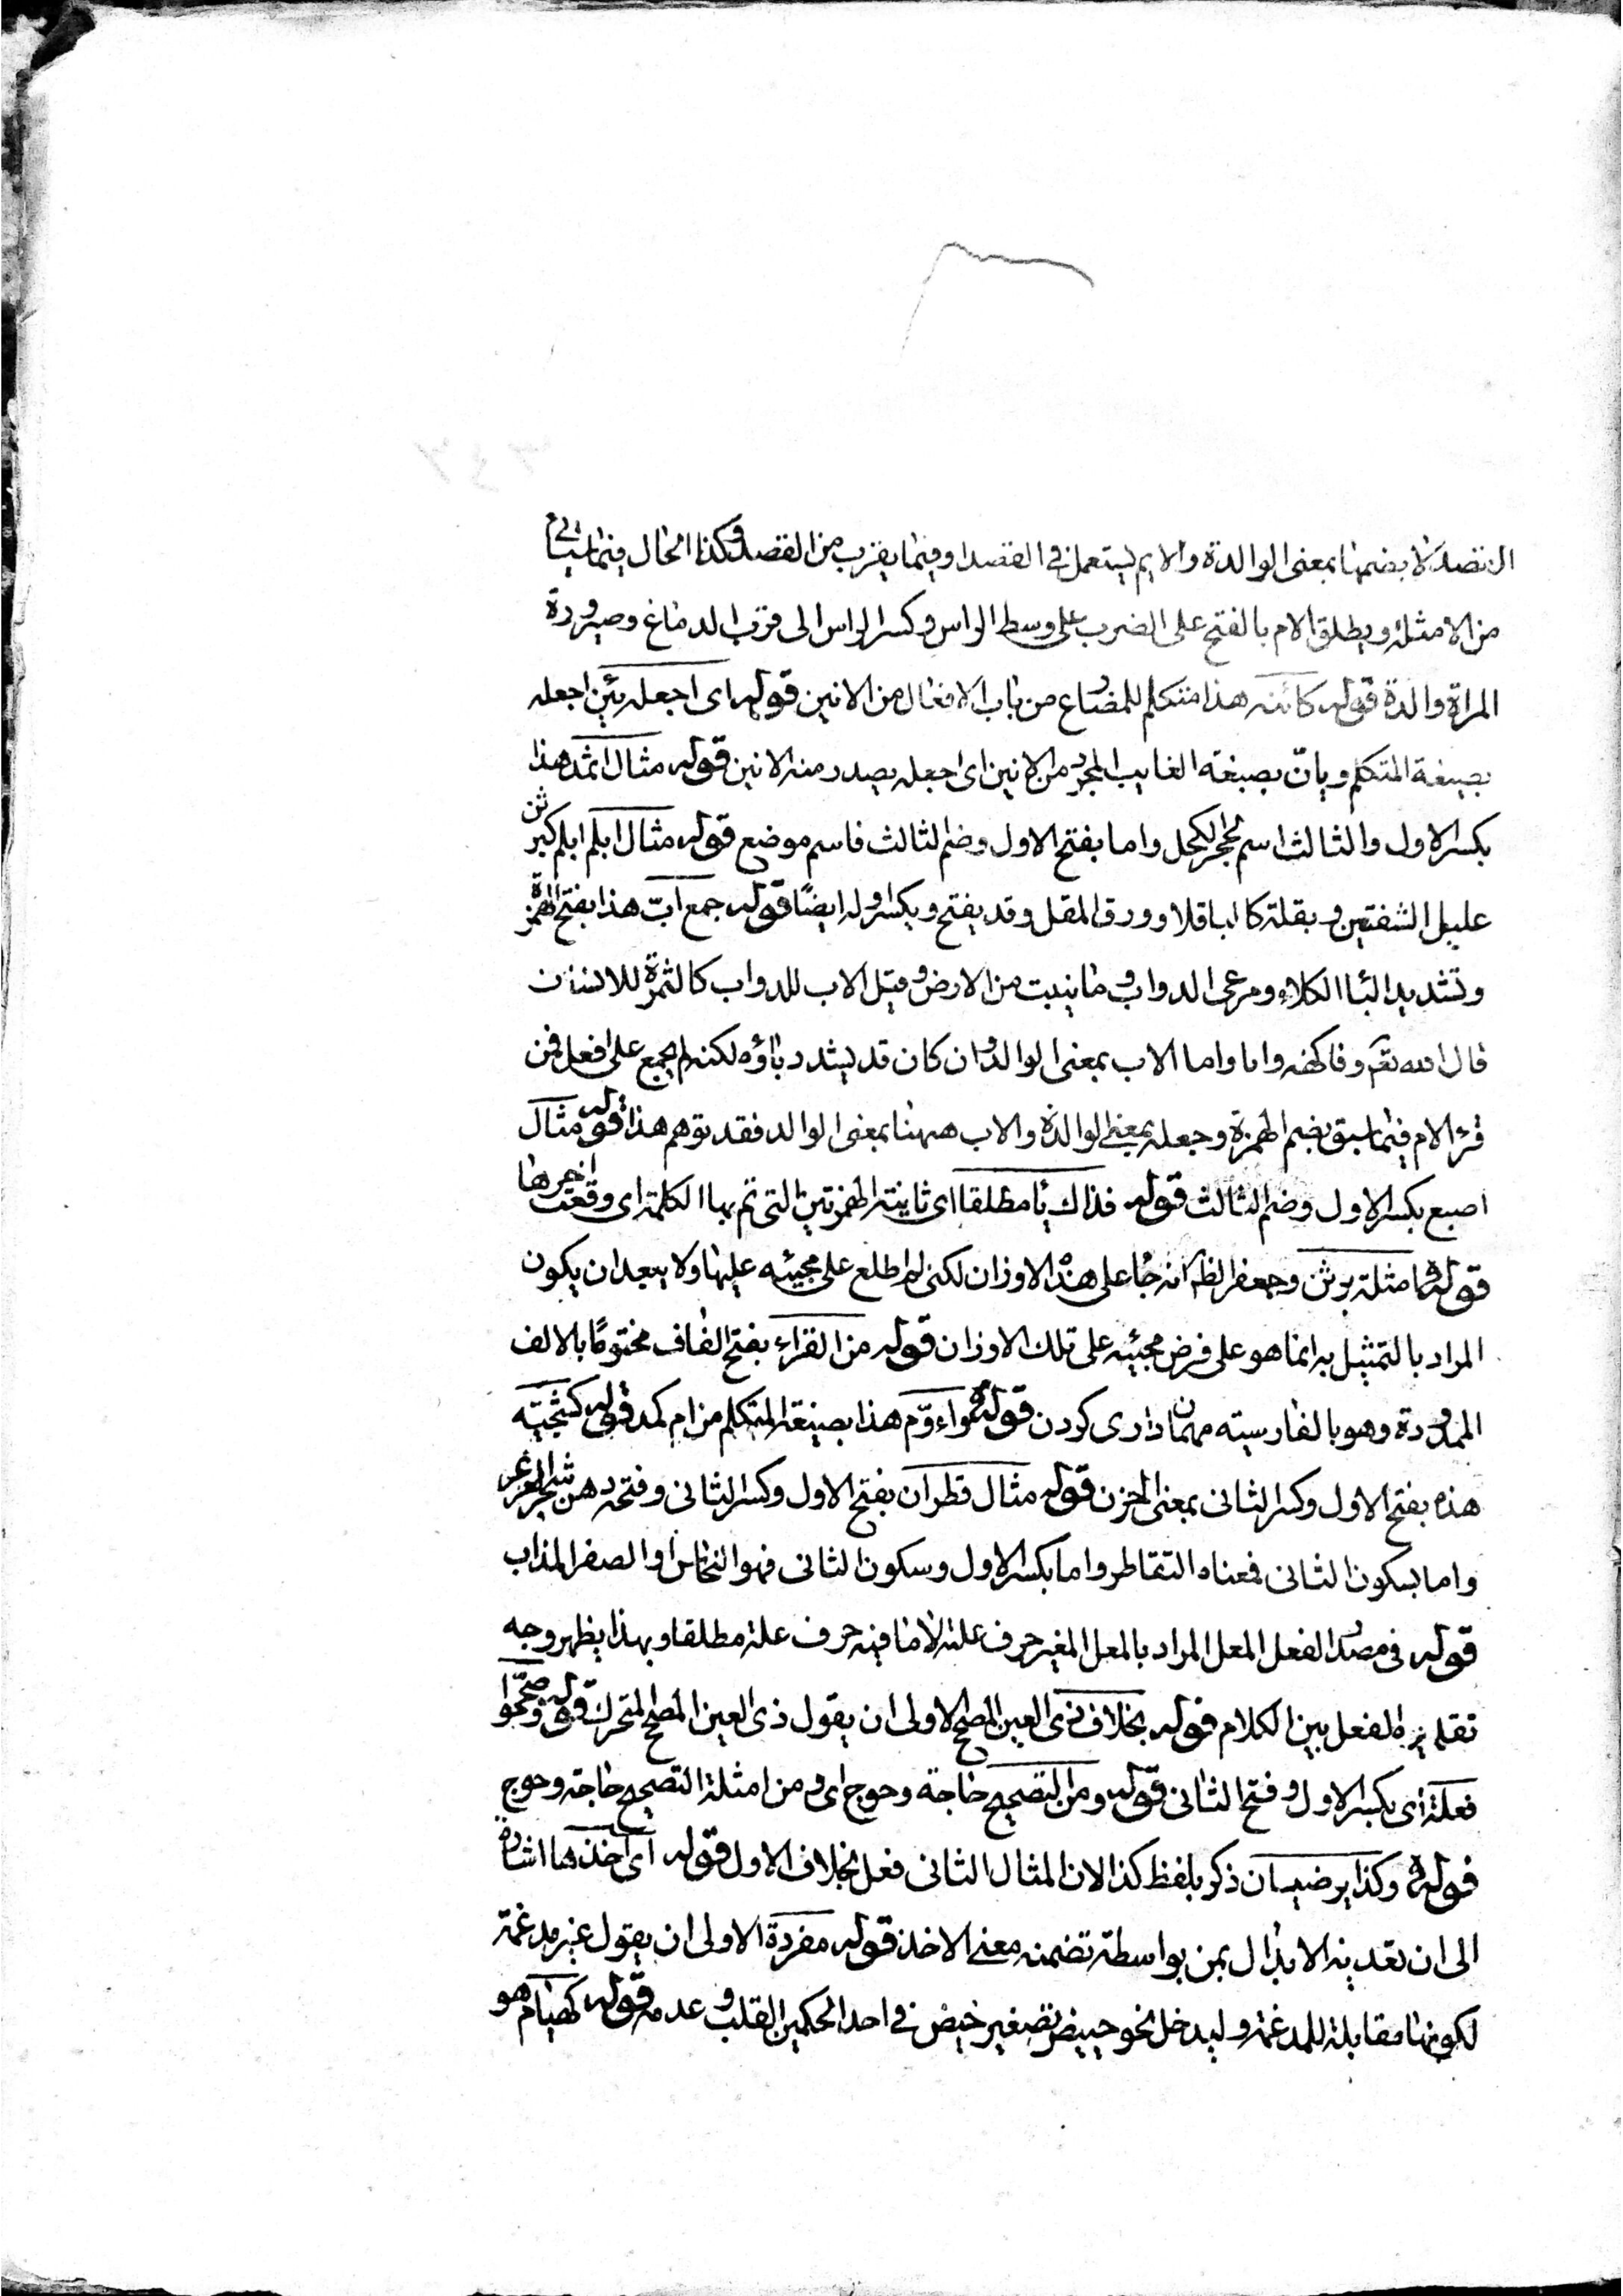 القصد لا بضمها بمعنى الوالدة والايم يستعمل في القصد او فيما يقرب من القصد وكذا الحال فيما سيأتي
من الامثلة ويطلق الام بالفتح على الضرب على وسط الراس وكسر الراس الى قرب الدماغ وصيرورة
المراة والدة قوله كائنه هذا متكلم للمضارع من باب الافعال من الانين قوله اى اجعله يئن اجعله
بصيغة المتكلم ويانّ بصيغة الغايب المجرد من الانين اى اجعله يصدر منه الانين قوله مثال اثمد هذا
بكسر الاول والثالث اسم لحجر الكحل واما بفتح الاول وضم الثالث فاسم موضع قوله مثال ابلم ابلم كبرثن
عليل الشفتين وبقلة كالباقلا وورق المقل وقد يفتح ويكسر اوله ايضًا قوله جمع ابّ هذا بفتح الهمزة
وتشديد البا الكلاء ومرعى الدواب وما ينبت من الارض وقيل الاب للدواب كالثمرة للانسان
قال الله تعم وفاكهة وابا واما الاب بمعنى الوالد وان كان قد يشدد باؤه لكنه لم يجمع على افعل فمن
قرء الام فيما سبق بضم الهمزة وجعله بمعنى الوالدة والاب ههنا بمعنى الوالد فقد توهم هذا قوله مثال
اصبع بكسر الاول وضم الثالث قوله فذاك يا مطلقا اى ثانية الهمزتين التى تم بها الكلمة اى وقعت اخيرها
قوله وامثلة برثن وجعفر الظ انه جا على هذه الاوزان لكنى لم اطلع على مجيئه عليها ولا يبعد ان يكون
المراد بالتمثيل به انما هو على فرض مجيئه على تلك الاوزان قوله من القراء بفتح القاف مختومًا بالالف
الممدودة وهو بالفارسيته مهمان دارى كردن قوله واءومّ هذا بصيغة المتكلم من ام كمد قوله كشجيّته
هذه بفتح الاول وكسر الثانى بمعنى الحزن قوله مثال قطران بفتح الاول وكسر الثانى وفتحه دهن شجر العرعر
واما بسكون الثانى فمعناه التقاطر واما بكسر الاول وسكون الثانى فهو النحاس او الصفر المذاب
قوله فى مصدر الفعل المعل المراد بالمعل المغير حرف علته لا ما فيه حرف علة مطلقا وبهذا يظهر وجه
تقليره الفعل بين الكلام قوله بخلاف ذى العين المصحح الاولى ان يقول ذى العين المصحح المتحرك قوله وصححوا
فعلة اى بكسر الاول وفتح الثانى قوله ومن التصحيح حاجة وحوج اى ومن امثلة التصحيح حاجة وحوج
قوله وكذا يرضيان ذكر بلفظ كذا لان المثال الثانى فعل بخلاف الاول قوله اى اخذها اشارة
الى ان تعديه الابدال بمن بواسطة تضمنه معنى الاخذ قوله مفردة الاولى ان يقول غير مدغمة
لكونها مقابلة للمدغمة وليدخل نحو حييض تصغير حيض فى احد الحكمين القلب وعدمه قوله كهيام هو